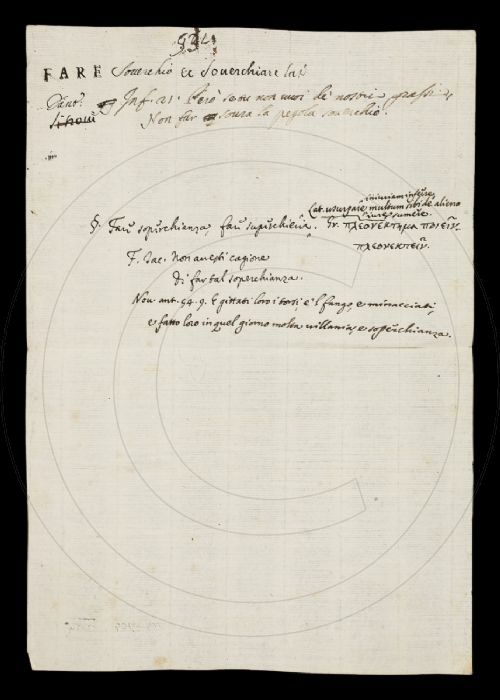 924
FARE Soverchio et Soverchiare
Dant. Inf. 21. Però se tu non vuoi de nostri graffi
Non far sovra la pegola soverchio.
iniuriam inferre,
Lat. usurpare multum sibi de alieno
iure sumere
§. Fare soperchianza, fare superchieria. Gr. πλεονεκτημα ποιειν.
πλεονεκτειν.
F. Iac. Non avesti cagione
Di far tal soperchianza.
Nov. ant. 94. 9. E gittati loro i torsi, e 'l fango, e minacciati,
e fatto loro in quel giorno molta villania, e soperchianza.